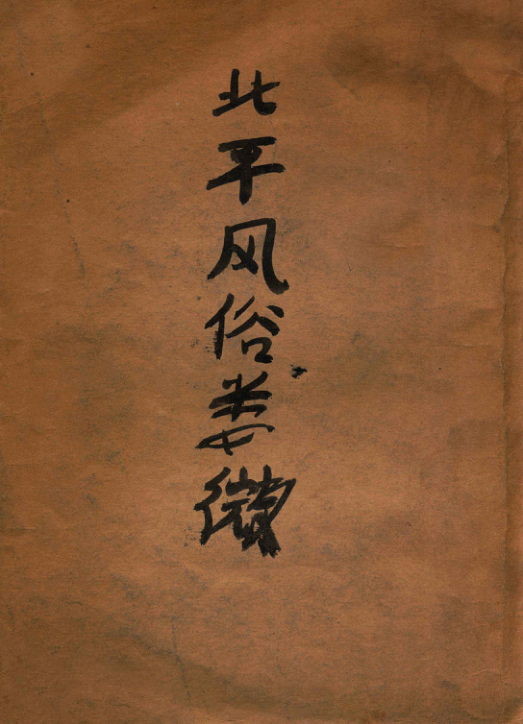 北平风俗娄徵